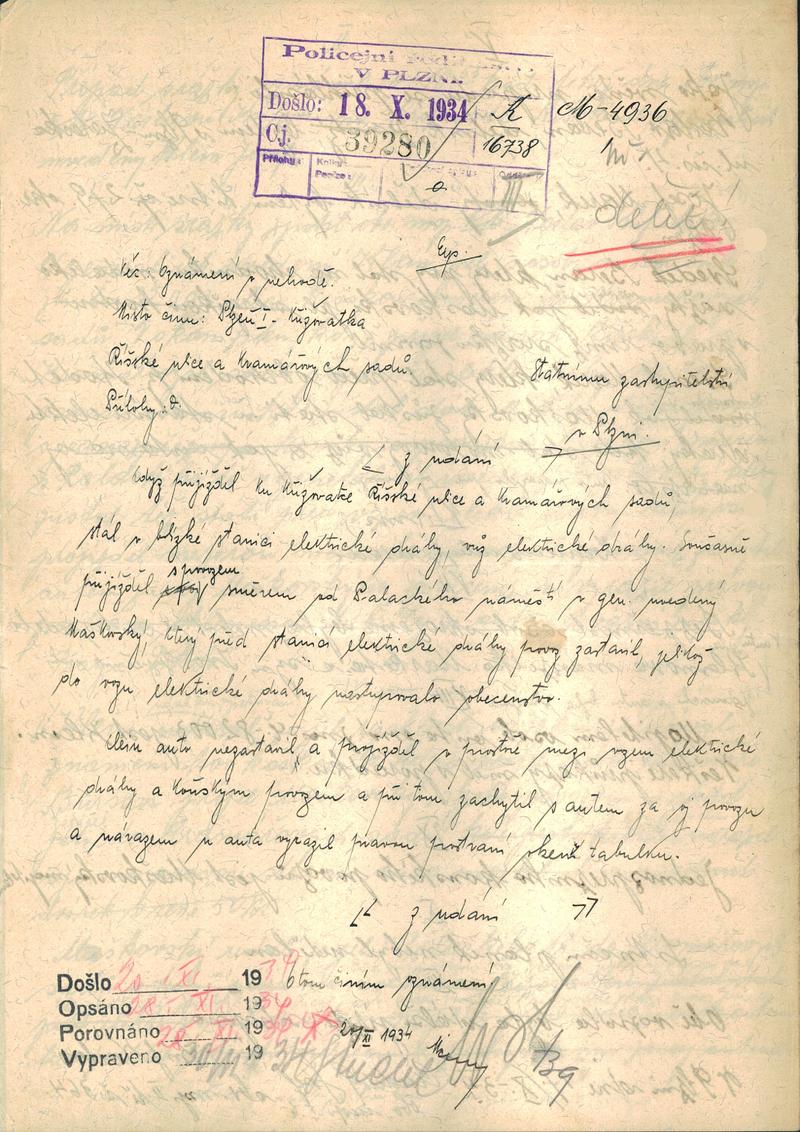 Policejní
V PLZNI.
Došlo: 18. X. 1934 K M-4936
Čj. 39280 16738
Přílohy:
Exp.
Věc: Oznámení o nehodě.
Místo činu: Plzeň I - Křižovatka
Říšské ulice a Kramářových sadů.
Státnímu zastupitelství
Přílohy:
v Plzni.
z udání
Když přijížděl ku křižovatce Říšské ulice a Kramářových sadů,
stál v blízké stanici elektrické dráhy, vůz elektrické dráhy. Současně
přijížděl s povozem směrem od Palackého náměstí v gen. uvedený
Maškovský, který před stanicí elektrické dráhy povoz zastavil, jelikož
do vozu elektrické dráhy nastupovalo obecenstvo.
auto nezastavil a projížděl v prostoře mezi vozem elektrické
dráhy a koňským povozem a při tom zachytil s autem za oj povozu
a nárazem u auta vyrazil pravou postranní okení tabulku.
z udání
O tom činím oznámení
Došlo 20. XI. 1934
Opsáno 28. XI. 1934
Porovnáno 28. XI. 1934
Vypraveno 19
20/XI 1934